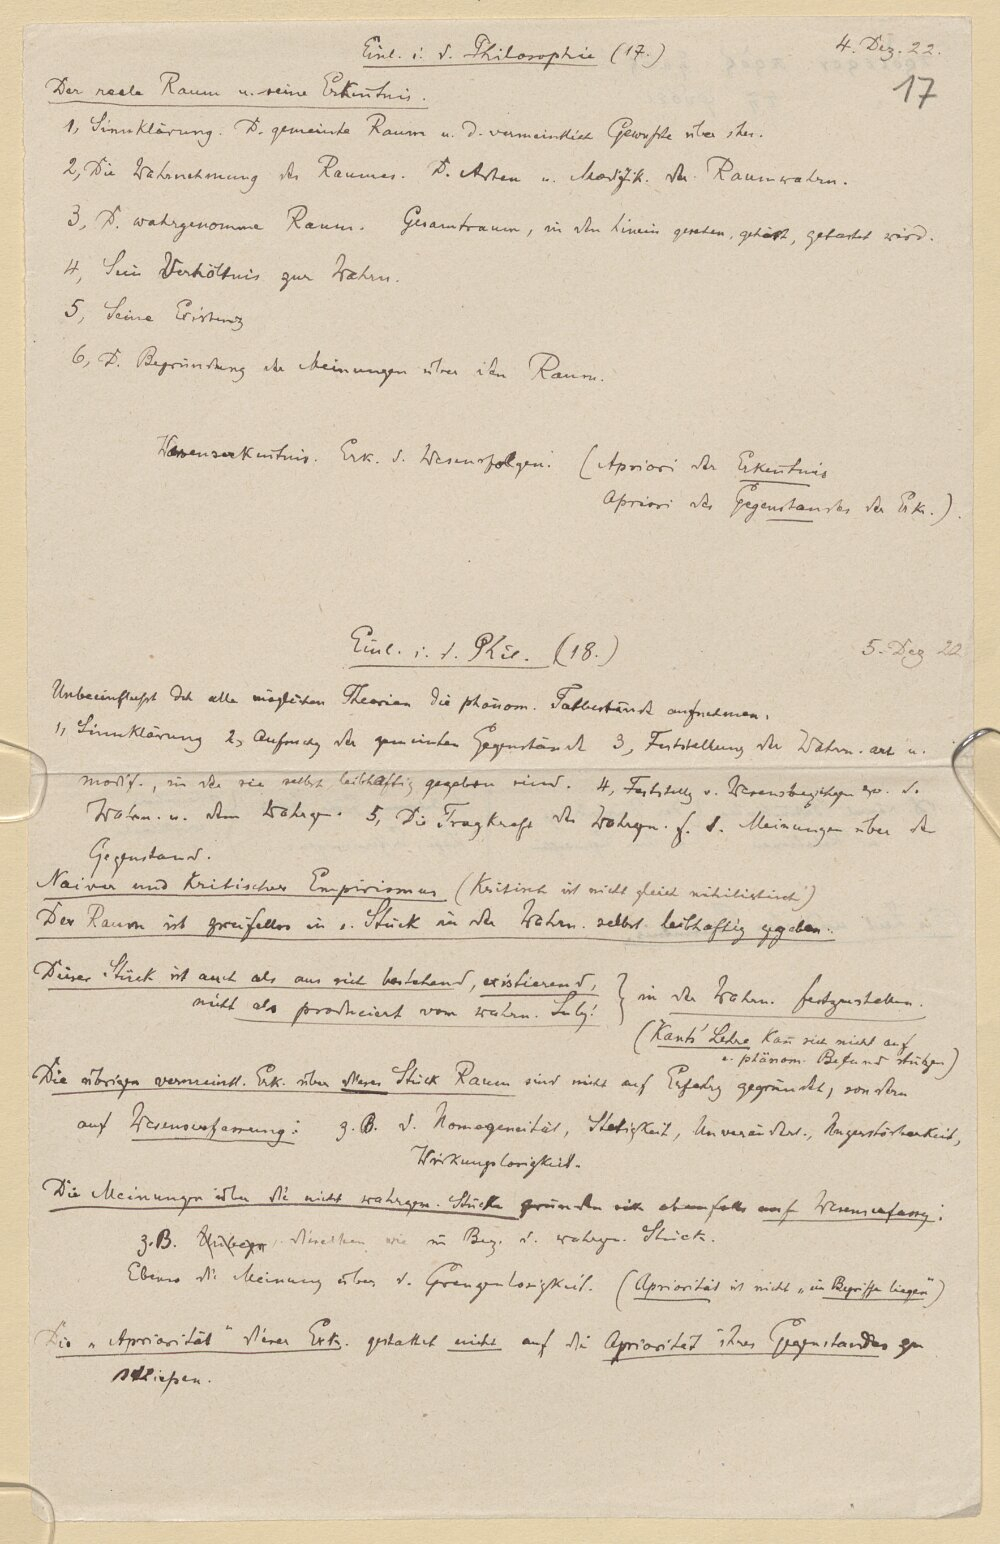 Einl. i. d. Philosophie (17.)
4. Dez. 22.
17
Der reale Raum u. seine Erkenntnis.
1, Sinnklärung. D. gemeinte Raum u. d. vermeintlich Gewußte über ihn.
2, Die Wahrnehmung des Raumes. D. Arten u. Modifik. der Raumwahrn.
3, D. wahrgenomme Raum. Gesamtraum, in den hinein gesehen, gehört, getastet wird.
4, Sein Verhältnis zur Wahrn.
5, Seine Existenz
6, D. Begründung der Meinungen über den Raum.
Wesenserkentnis. Erk. d. Wesensfolgen. (Apriori der Erkentnis
Apriori des Gegenstandes der Erk.).
Einl. i. d. Phil. (18.)
5. Dez 22
Unbeeinflußt dch alle möglichen Theorien die phänom. Tatbestände aufnehmen.
1, Sinnklärung 2, Aufsuchg der gemeinten Gegenstände 3, Feststellung der Wahrn. art u.
modif., in der sie selbst leibhaftig gegeben sind. 4, Feststellg v. Wesensbeziehgen zw. d.
Wahrn. u. dem Wahrgen. 5, Die Tragkraft des Wahrgen. f. d. Meinungen über den
Gegenstand.
Naiver und Kritischer Empirismus (Kritisch ist nicht gleich nihilistisch)
Der Raum ist zweifellos in e. Stück in der Wahrn. selbst leibhaftig gegeben.
Dieses Stück ist auch als aus sich bestehend, existierend,
nicht als produciert vom wahrn. Subj.
} in der Wahrn. festzustellen.
(Kants' Lehre kan sich nicht auf
e. phänom. Befund stützen)
Die übrigen vermeintl. Erk. über dieses Stück Raum sind nicht auf Erfahrg gegründet, sondern
auf Wesenserfassung: z. B. d. Homogeneität, Stetigkeit, Unveränderl., Unzerstörbarkeit,
Wirkungslosigkeit.
Die Meinungen über die nicht wahrgen. Stücke gründen sich ebenfalls auf Wesenserfassg:
z. B. dieselben wie in Bez. d. wahrgn. Stück.
Ebenso die Meinung über d. Grenzenlosigkeit. (Apriorität ist nicht „im Begriffe liegen")
Die „Apriorität" dieser Erk. gestattet nicht auf die Apriorität ihres Gegenstandes zu
schließen.